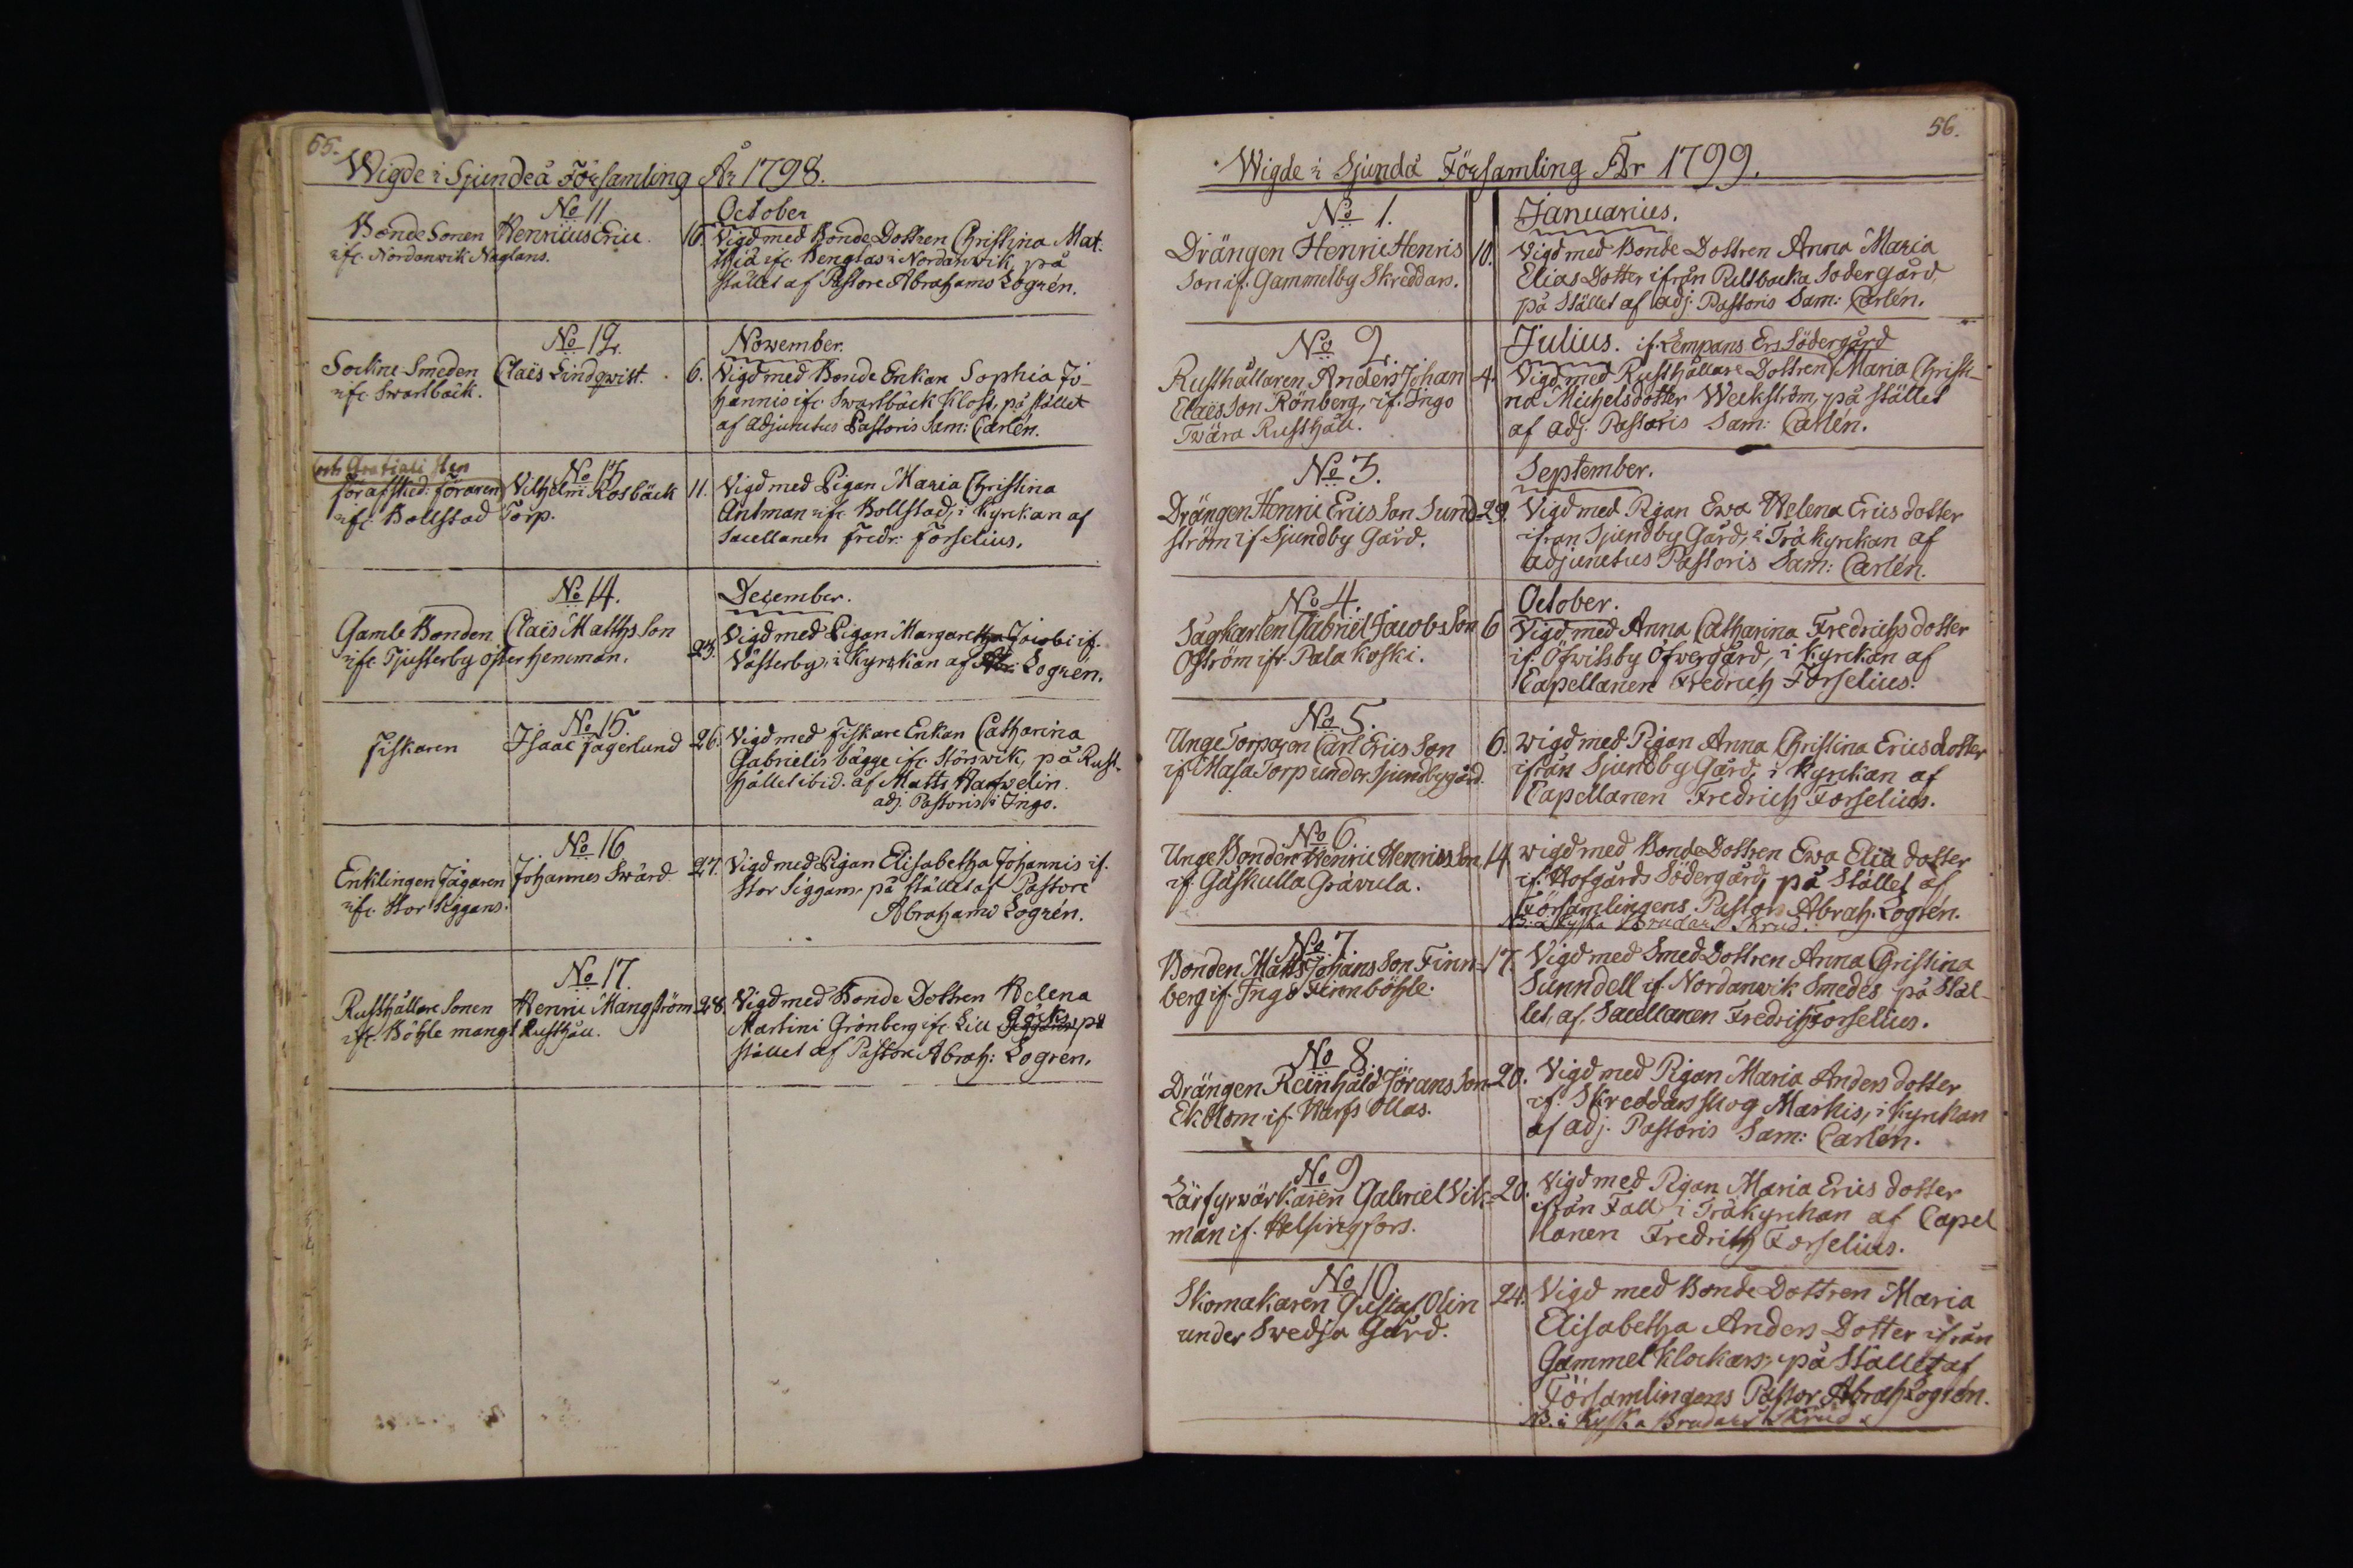 55.
Wigde i Sjundeå Församling År 1798.
No 11.
October
Bonde Sonen Henricus Erici. 16. Vigd med Bonde Dottren Christina Mat-
ifr. Nordanwik Naglans. thiæ ifr. Bengtas i Nordanwik, på
stället af Pastore Abrahamo Logrén.
No 12.
November.
Sockne Smeden Claës Lindqwist. 6. Vigd med Bonde Enkan Sophia Jo-
ifr. Swartbäck. hannis ifr. Swartbäck Kloss, på stället
af Adjunctus Pastoris Sam: Carlén.
och Gratialisten
No 13
för afsked: föraren Vilhelm Rosbäck 11. Vigd med Pigan Maria Christina
ifr. Bollstad Torp. Antman ifr. Bollstad, i Kyrkan af
Sacellanen Fredr: Forselius.
No 14.
December.
Gamle Bonden Claës Matths Son 23. Vigd med Pigan Margaretha Jacobi if.
ifr. Tjusterby öfter hemman. Västerby, i Kyrkan af Abr: Logrén.
No 15.
Fiskaren Isaac Fagerlund 26. Vigd med Fiskare Enkan Catharina
Gabrielis bägge ifr. Störswik, på Rust-
hållet ibid. af Matts Hafwelin.
adj. Pastoris i Ingo.
No 16
Enklingen Jägaren Johannes Swärd 27. Vigd med Pigan Elisabetha Johannis if.
ifr. Stor Siggans. Stor Siggans, på stället af Pastore
Abrahamo Logrén.
No 17.
Rusthållare Sonen Henric Mangström 28. Vigd med Bonde Dottren Helena
ifr. Böhle mangs Rusthåll. Martini Grönberg ifr. Lill på
stället af Pastore Abrah: Logrén.
56.
Wigde i Sjundå Församling År 1799.
No 1.
Januarius.
Drängen Henric Henrics 10. Vigd med Bonde Dottren Anna Maria
Son if. Gammelby Skreddars. Elias Dotter ifrån Piltbacka Södergård,
på Stället af adj: Pastoris Sam: Carlén.
No 2.
Julius. if. Lempans Ers Södergård
Rusthållaren Anders Johan 4. Vigd med Rusthållare Dottren Maria Christi-
Claës Son Rönberg, if. Ingo na Michelsdotter Weckström, på stället
Twära Rusthåll. af adj. Pastoris Sam: Carlén.
No 3.
September.
Drängen Henric Erics Son Sund- 29. Vigd med Pigan Ewa Helena Erics dotter
ström if Sjundby Gård. ifrån Sjundby Gård, i Träkyrckan af
adjunctus Pastoris Sam: Carlén.
No 4.
October.
Sågkarlen Gabriel Jacobs Son 6 Vigd med Anna Catharina Fredrichsdotter
Öström ifr. Palakoski. if: Öfwitsby Öfwergård, i Kyrckan af
Capellanen Fredrich Forselius.
No 5.
Unge Torparen Carl Erics Son 6. wigd med Pigan Anna Christina Erics dotter
if Masa Torp under Sjundbygård. ifrån Sjundby Gård, i Kyrckan af
Capellanen Fredrich Forselius.
No 6.
Unge Bonden Henric Henrics Son, 14. wigd med Bonde Dottren Ewa Eliæ dotter
if. Gåskulla Gråvula. if. Hofgårds Södergård, på Stället af
Församlingens Pastor Abrah. Logrén.
NB. i Kyska Brudars Skrud.
No 7.
Bonden Matts Johans Son Finn- 17. Vigd med Smed Dottren Anna Christina
berg if. Ingo Finnböhle. Sunndell if. Nordanwik Smedes på Stäl-
let, af. Sacellanen Fredrich Forselius.
No 8.
Drängen Reinhåld Jörans Son 20. Vigd med Pigan Maria Anders dotter
Ekblom if. Harfs Ollas. if. Skreddarskog Maskis, i Kyrckan
af adj. Pastoris Sam: Carlén.
No 9
Lärfyrwärkaren Gabriel Vik- 20. Vigd med Pigan Maria Erics dotter
man if. Helsingfors. ifrån Fall i Träkyrckan af Capel
lanen Fredrich Forselius.
No 10.
Skomakaren Gustaf Olin 24. Vigd med Bonde Dottren Maria
under Swedja Gård. Elisabetha Anders Dotter ifrån
Gammel Klockars, på Stället af
Församlingens Pastor Abrah Logrén.
NB. i Kyska Brudars Skrud.